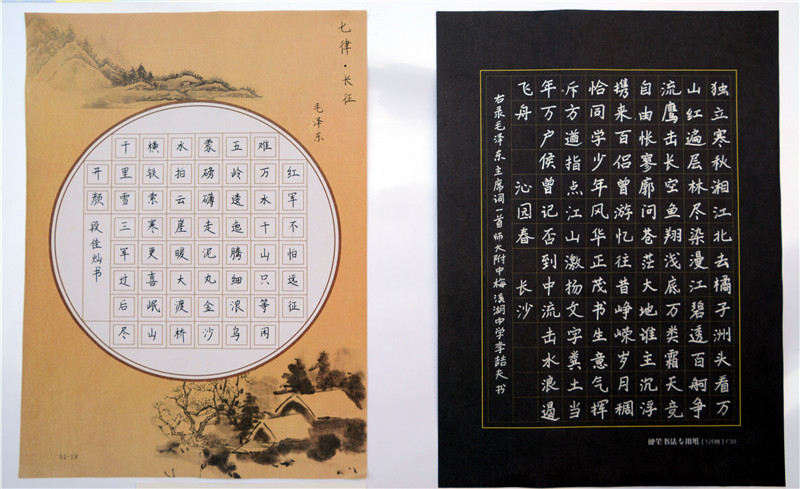 七律·长征
毛泽东
红军不怕远征
难万水千山只等闲
五岭逶迤腾细浪乌
蒙磅礴走泥丸金沙
水拍云崖暖大渡桥
横铁索寒更喜岷山
千里雪三军过后尽
开颜
段佳灿书
51-18
独立寒秋湘江北去橘子洲头看万
山红遍层林尽染漫江碧透百舸争
流鹰击长空鱼翔浅底万类霜天竞
自由怅寥廓问苍茫大地谁主沉浮
携来百侣曾游忆往昔峥嵘岁月稠
恰同学少年风华正茂书生意气挥
斥方遒指点江山激扬文字粪土当
年万户侯曾记否到中流击水浪遏
飞舟 沁园春 长沙
右录毛泽东主席词一首师大附中梅溪湖中学李喆夫书
硬笔书法专用纸